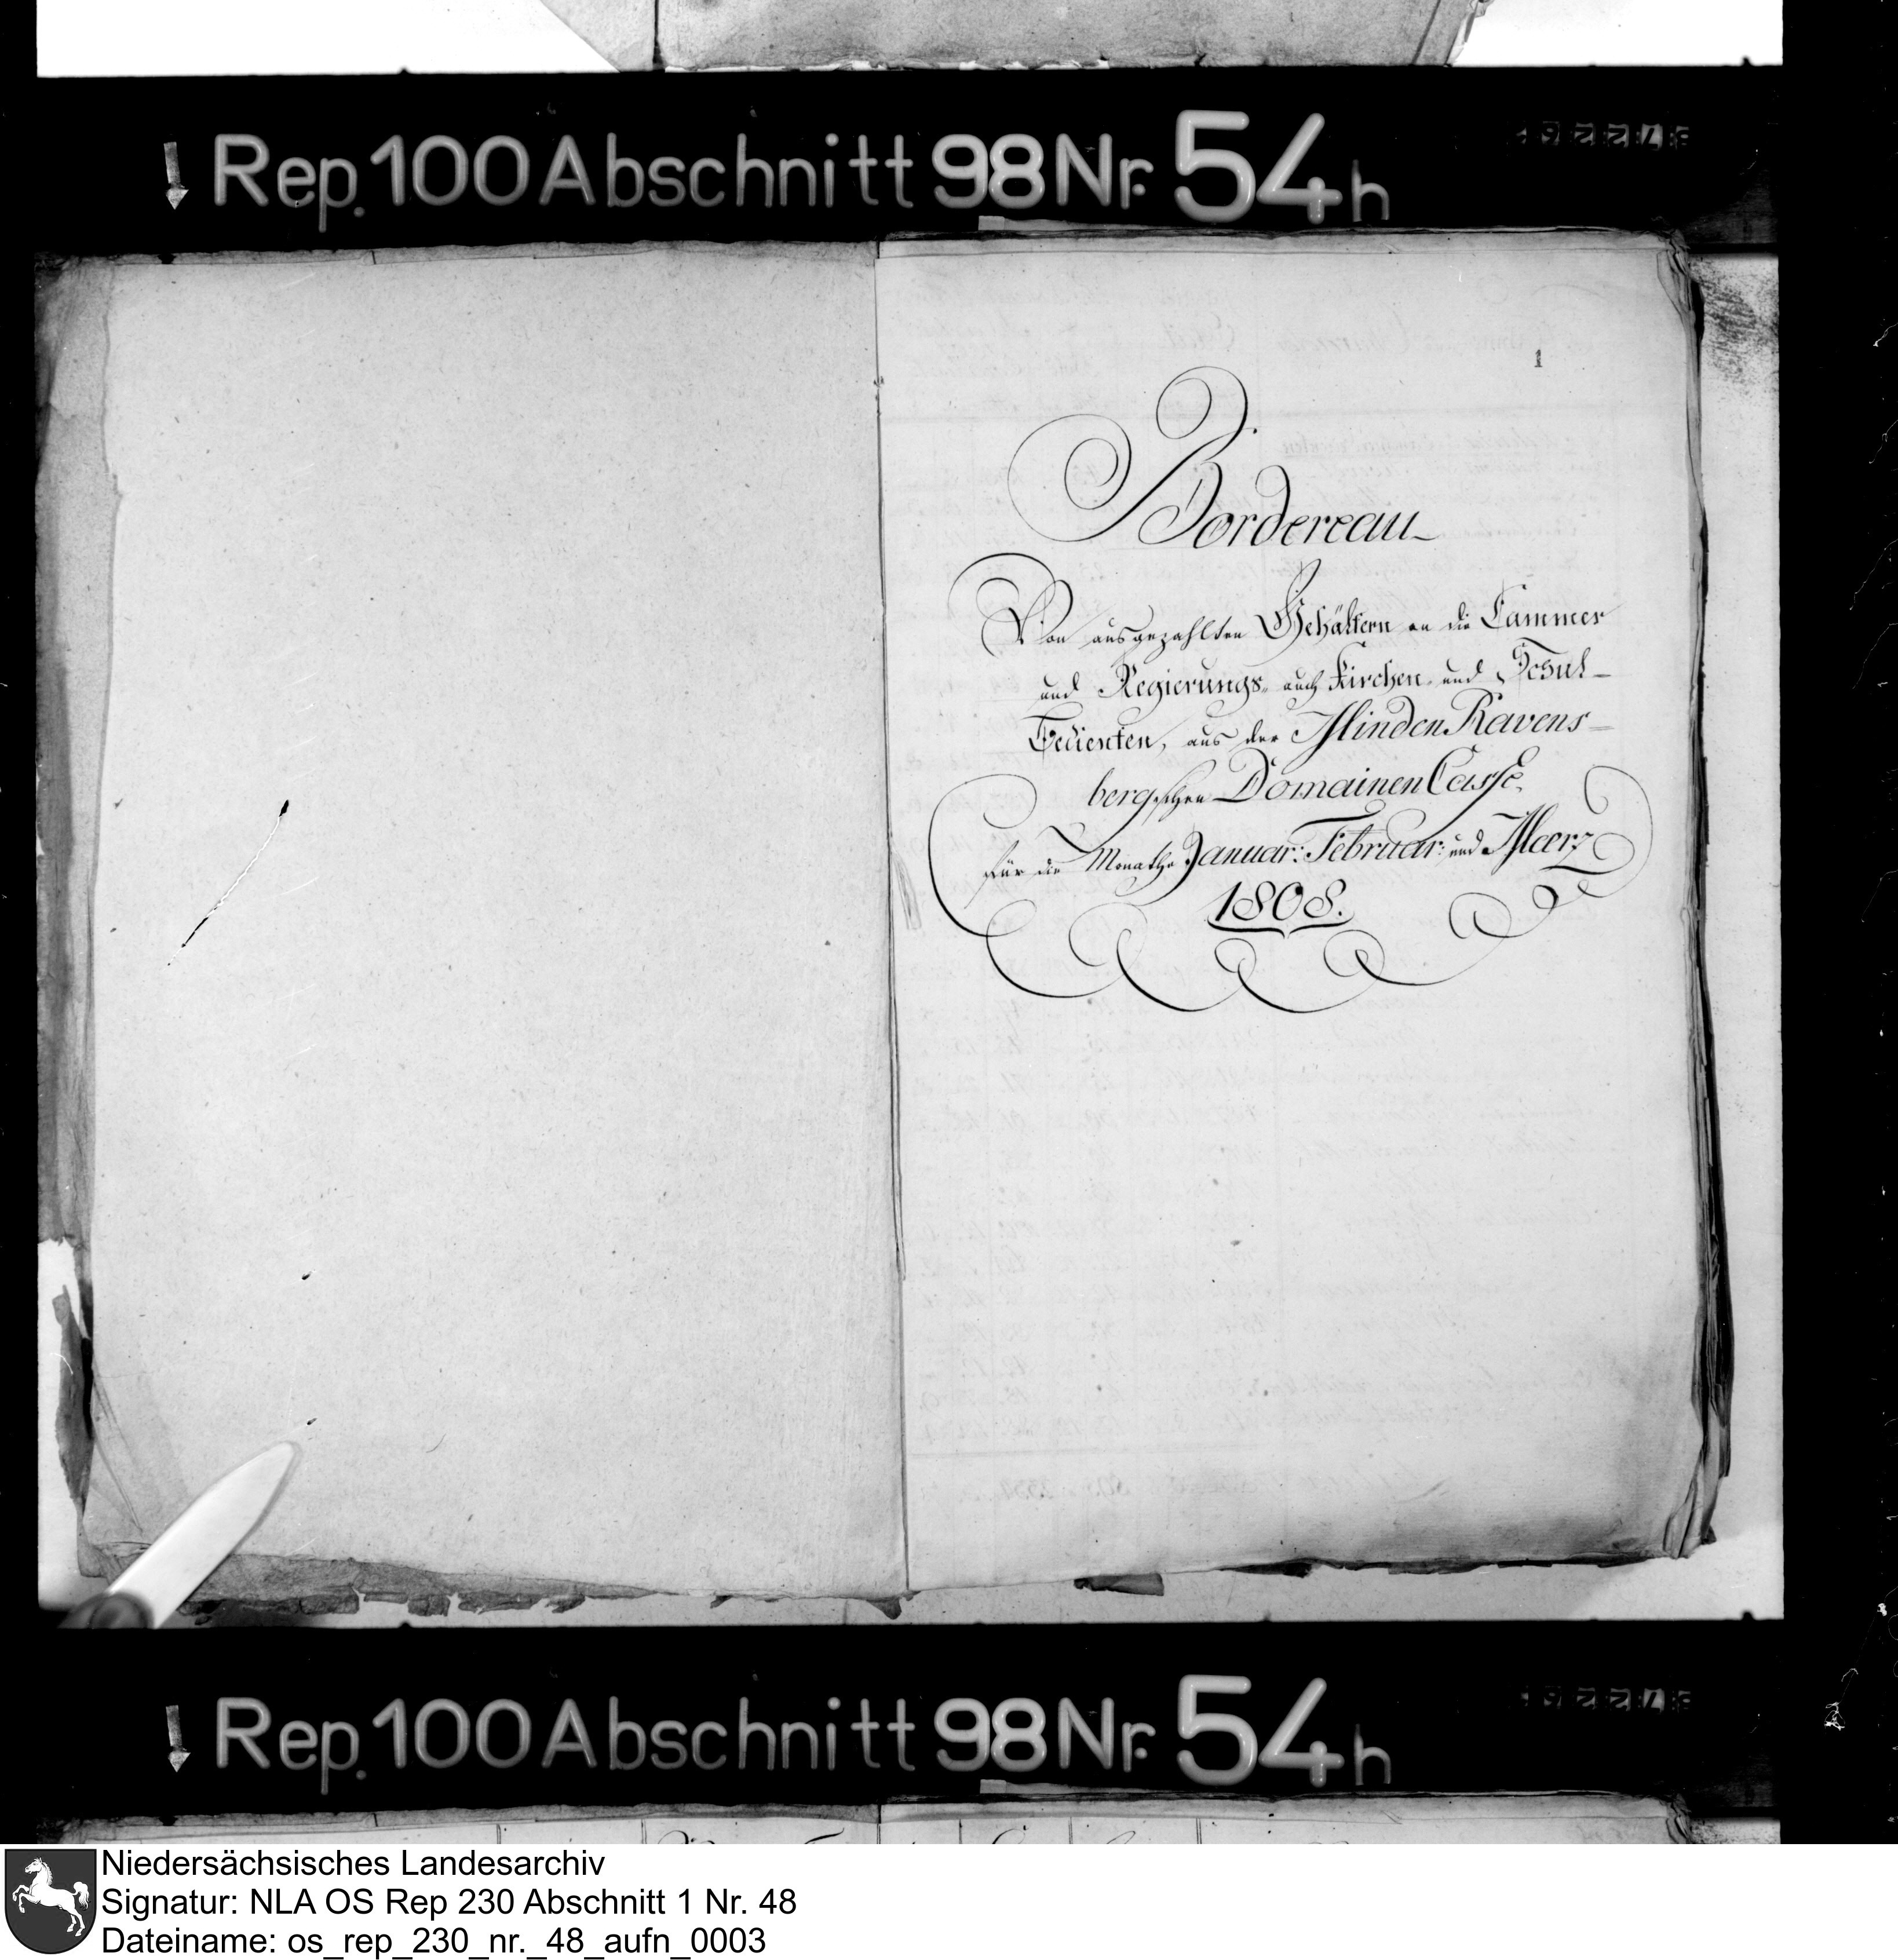 Rep. 100 Abschnitt 98 Nr. 54 h
1
Bordereau
Von ausgezahlten Gehältern an die Cammer
und Regierungs- auch Kirchen- und Schul-
Bedienten, aus der Minden Ravens-
bergschen Domainen Casse,
für die Monathe Januar: Februar: und Maerz
1808.
Rep. 100 Abschnitt 98 Nr. 54 h
Niedersächsisches Landesarchiv
Signatur: NLA OS Rep 230 Abschnitt 1 Nr. 48
Dateiname: os_rep_230_nr._48_aufn_0003